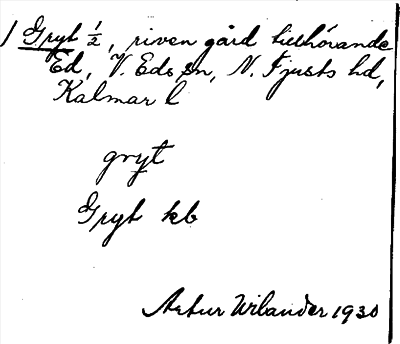 1 Gryt ½, riven gård tillhörande
Ed, V. Eds sn, N. Tjusts hd,
Kalmar l
gryt
Gryt kb
Artur Wilander 1930